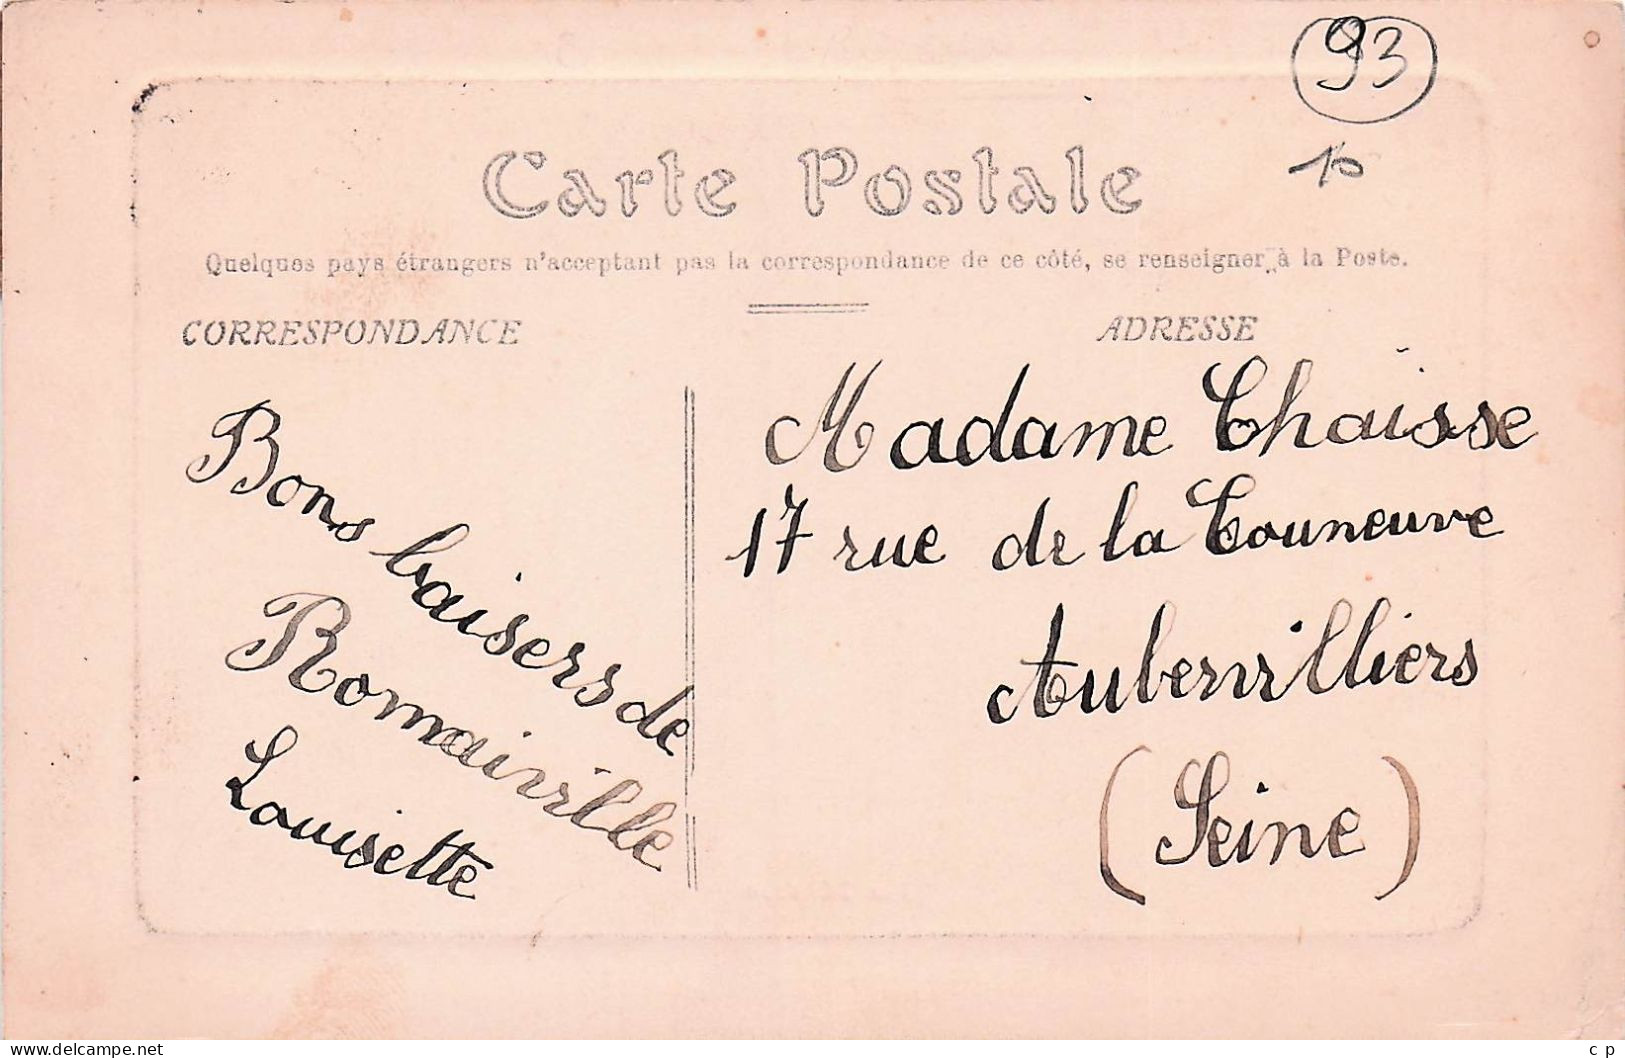 93
10
Carte Postale
Quelques pays étrangers n'acceptant pas la correspondance de ce côté, se renseigner à la Poste.
CORRESPONDANCE
ADRESSE
Bons baisers de
Romainville
Louisette
Madame Chaisse
17 rue de la Couneuve
Aubervilliers
(Seine)
www.delcampe.net
c p